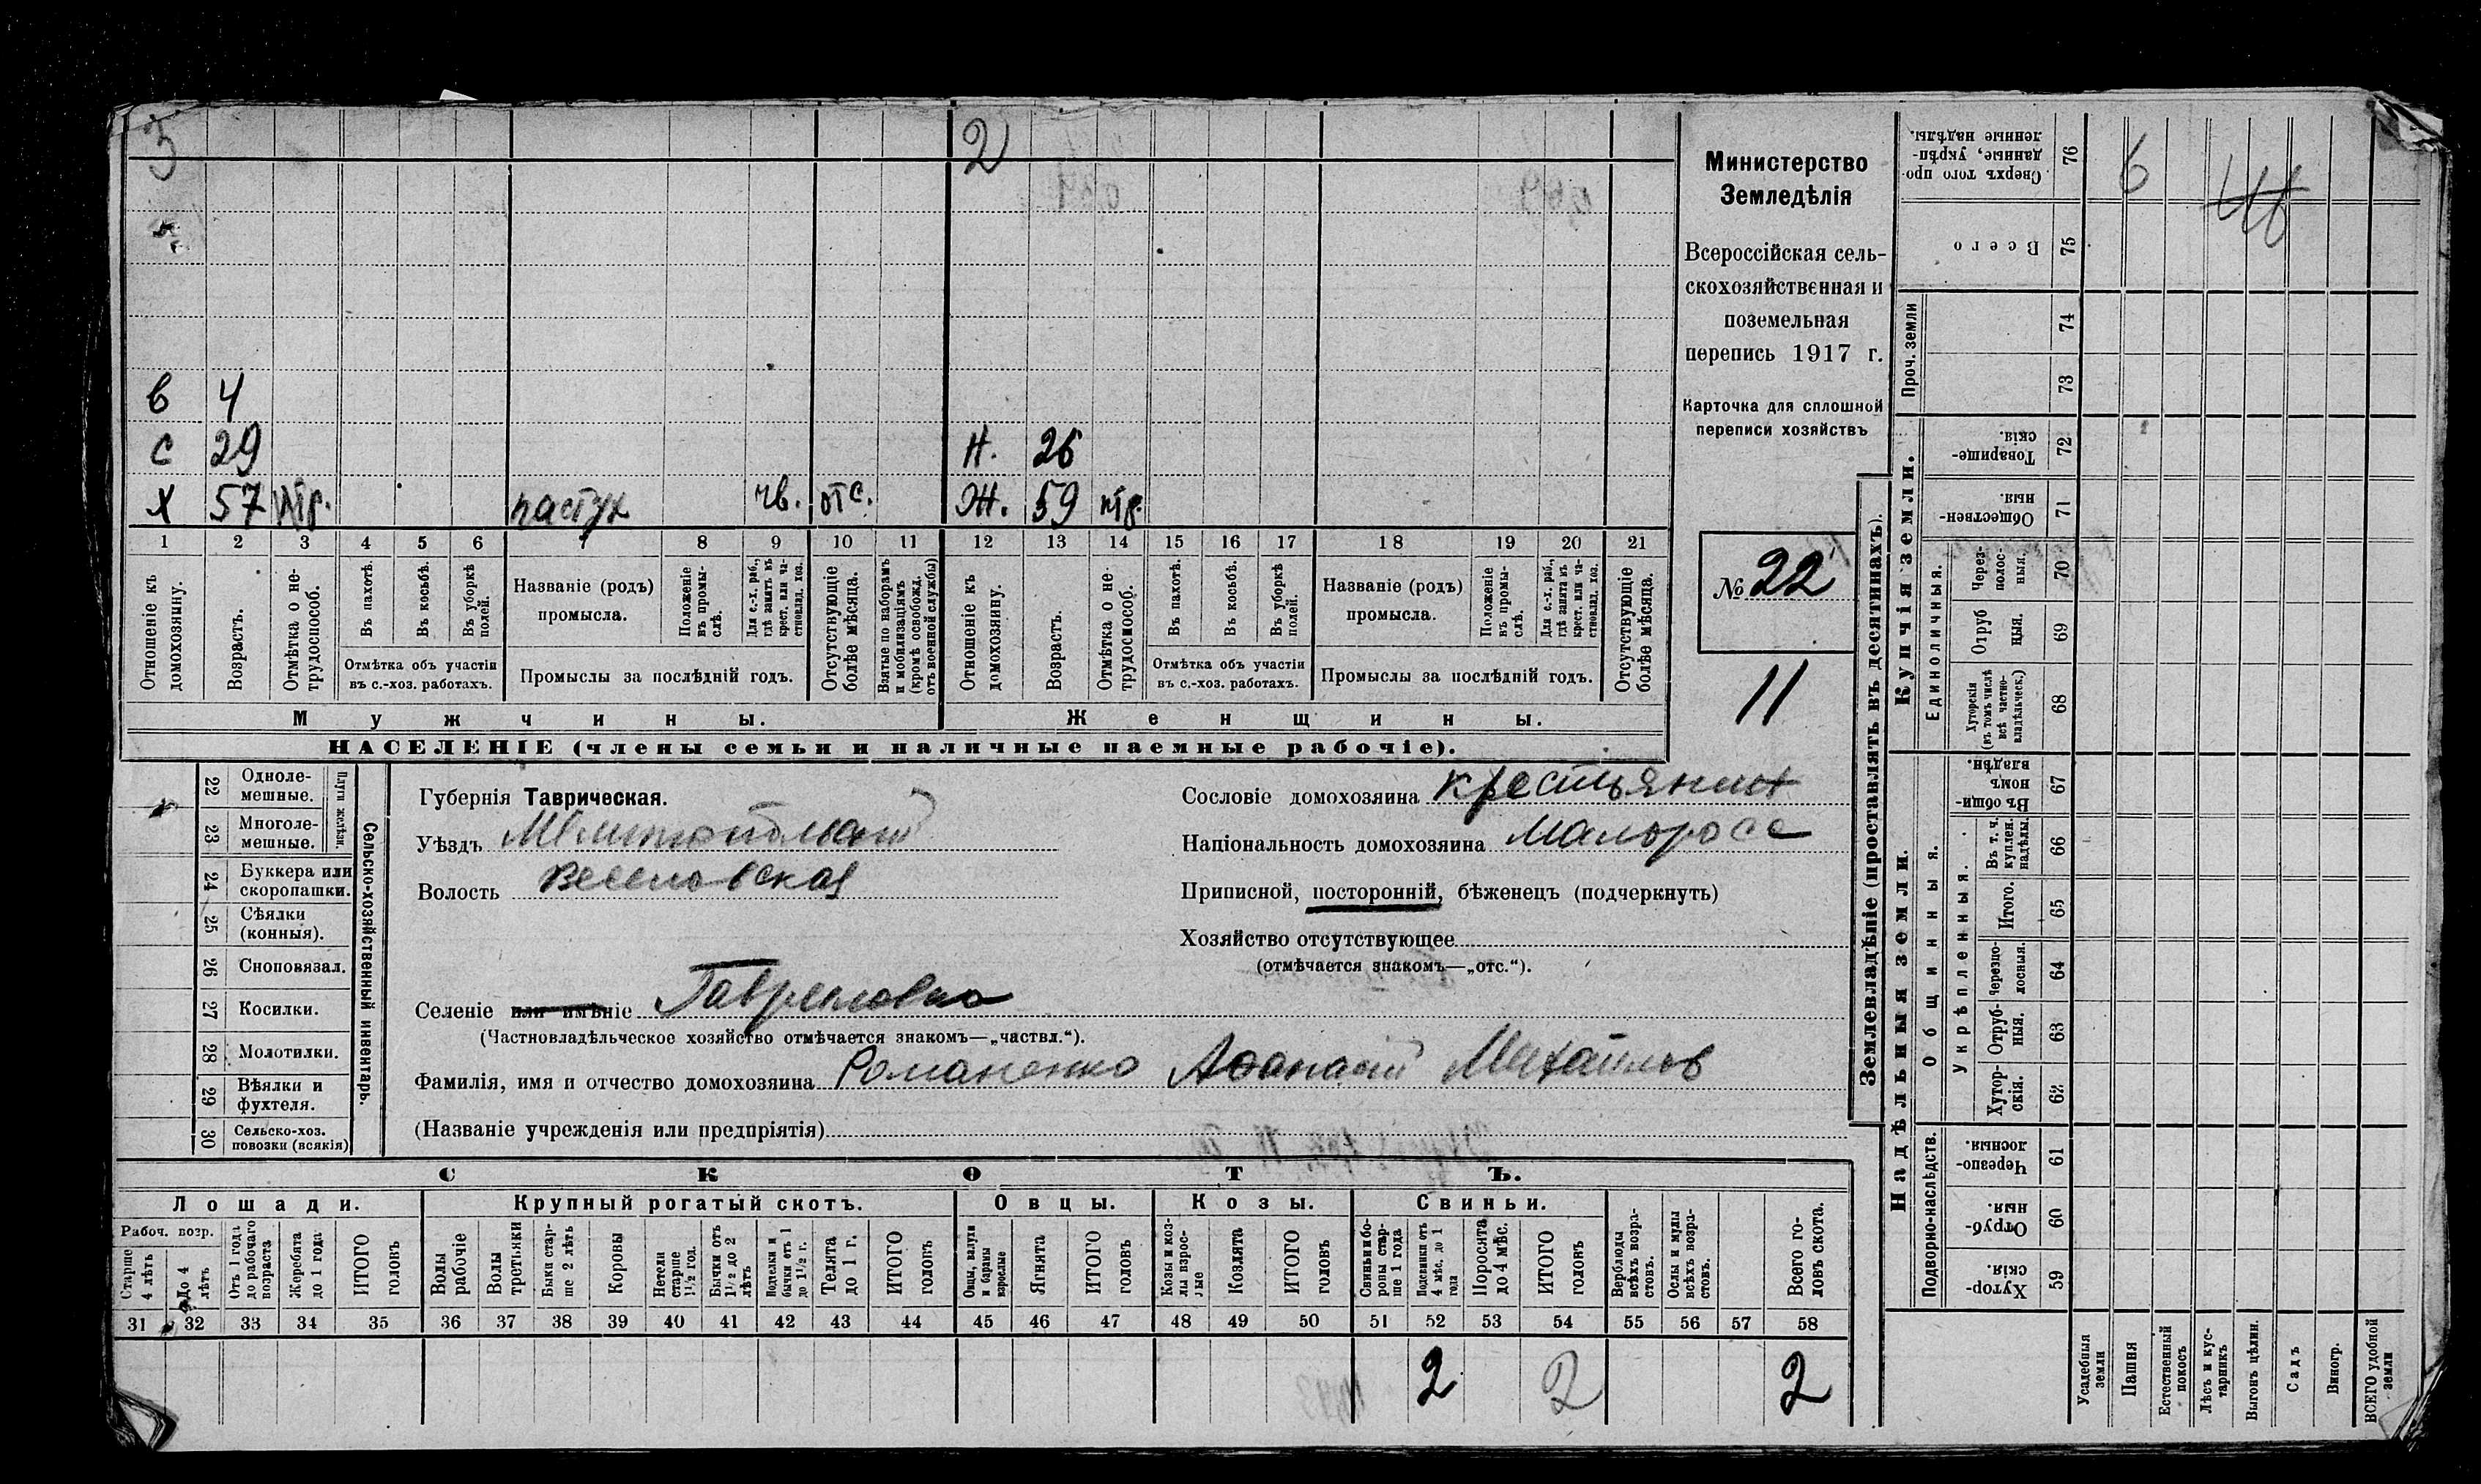 3 2
в 4
с 29 н. 26
х 57 нтр. пастух чв. отс. ж. 59 нтр.
1 2 3 4 5 6 7 8 9 10 11 12 13 14 15 16 17 18 19 20 21
Отношеніе къ домохозяину.
Возрастъ.
Отмѣтка о не-трудоспособ.
Въ пахотѣ.
Въ косьбѣ.
Въ уборкѣ полей.
Отмѣтка объ участіи
въ с.-хоз. работахъ.
Названіе (родъ)
промысла.
Положеніе въ промы-слѣ.
Для с.-х. раб., гдѣ занятъ въ крест. или ча-стновлад. хоз.
Промыслы за послѣдній годъ.
Отсутствующіе болѣе мѣсяца.
Взятые по наборамъ и мобилизаціямъ (кромѣ освобожд. отъ военной службы)
Отношеніе къ домохозяину.
Возрастъ.
Отмѣтка о не-трудоспособ.
Въ пахотѣ.
Въ косьбѣ.
Въ уборкѣ полей.
Отмѣтка объ участіи
въ с.-хоз. работахъ.
Названіе (родъ)
промысла.
Положеніе въ промы-слѣ.
Для с.-х. раб., гдѣ занята въ крест. или ча-стновлад. хоз.
Промыслы за послѣдній годъ.
Отсутствующіе болѣе мѣсяца.
Мужчины. Женщины.
НАСЕЛЕНІЕ (члены семьи и наличные наемные рабочіе).
Министерство
Земледѣлія
Всероссійская сель-
скохозяйственная и
поземельная
перепись 1917 г.
Карточка для сплошной
переписи хозяйствъ
№ 22
11
Сельско-хозяйственный инвентарь.
Плуги желѣзн.
22 Одноле-мешные.
23 Многоле-мешные.
24 Буккера или скоропашки.
25 Сѣялки (конныя).
26 Сноповязал.
27 Косилки.
28 Молотилки.
29 Вѣялки и фухтеля.
30 Сельско-хоз. повозки (всякія)
Губернія Таврическая.
Уѣздъ Мелитопольскій
Волость Веселовская
Селеніе или имѣніе Гавриловка
(Частновладѣльческое хозяйство отмѣчается знакомъ—„частвл.“).
Фамилія, имя и отчество домохозяина Романенко Афанасій Михайлов
(Названіе учрежденія или предпріятія)
Сословіе домохозяина крестьянин
Національность домохозяина Малоросс
Приписной, посторонній, бѣженецъ (подчеркнуть)
Хозяйство отсутствующее
(отмѣчается знакомъ—„отс.“).
СКОТЪ.
Лошади. Крупный рогатый скотъ. Овцы. Козы. Свиньи.
Рабоч. возр.
Старше 4 лѣтъ
До 4 лѣтъ
Отъ 1 года до рабочаго возраста
Жеребята до 1 года
ИТОГО головъ
Волы рабочіе
Волы третьяки
Быки стар-ше 2 лѣтъ
Коровы
Нетели старше 1½ год.
Бычки отъ 1½ до 2 лѣтъ
Подтелки и бычки отъ 1 до 1½ г.
Телята до 1 г.
ИТОГО головъ
Овцы, валухи и бараны взрослые
Ягнята
ИТОГО головъ
Козы и коз-лы взрос-лые
Козлята
ИТОГО головъ
Свиньи и бо-ровы стар-ше 1 года
Подсвинки отъ 4 мѣс. до 1 года
Поросята до 4 мѣс.
ИТОГО головъ
Верблюды всѣхъ возра-стовъ.
Ослы и мулы всѣхъ возра-стовъ.
Всего го-ловъ скота.
31 32 33 34 35 36 37 38 39 40 41 42 43 44 45 46 47 48 49 50 51 52 53 54 55 56 57 58
2 2 2
Землевладѣніе (проставлять въ десятинахъ).
Сверхъ того про-данные, укрѣп-ленные надѣлы. 76
6
Всего 75
Проч. земли 74
73
Купчія земли.
Товарище-скія. 72
Обществен-ныя. 71
Единоличныя.
Через-полос-ныя. 70
Отруб ныя. 69
Хуторскія (въ томъ числѣ всѣ частно-владѣльческ.) 68
Надѣльныя земли.
Общинныя.
Въ общи-номъ владѣн. 67
Укрѣпленныя.
Въ т. ч. куплен. надѣлы. 66
Итого. 65
Черезпо-лосныя. 64
Отруб-ныя. 63
Хутор-скія. 62
Подворно-наслѣдств.
Черезпо-лосныя 61
Отруб-ныя 60
Хутор-скія. 59
Усадебныя земли
Пашня
Естественный покосъ
Лѣсъ и кус-тарникъ
Выгонъ цѣлин.
Садъ
Виногр.
ВСЕГО удобной земли